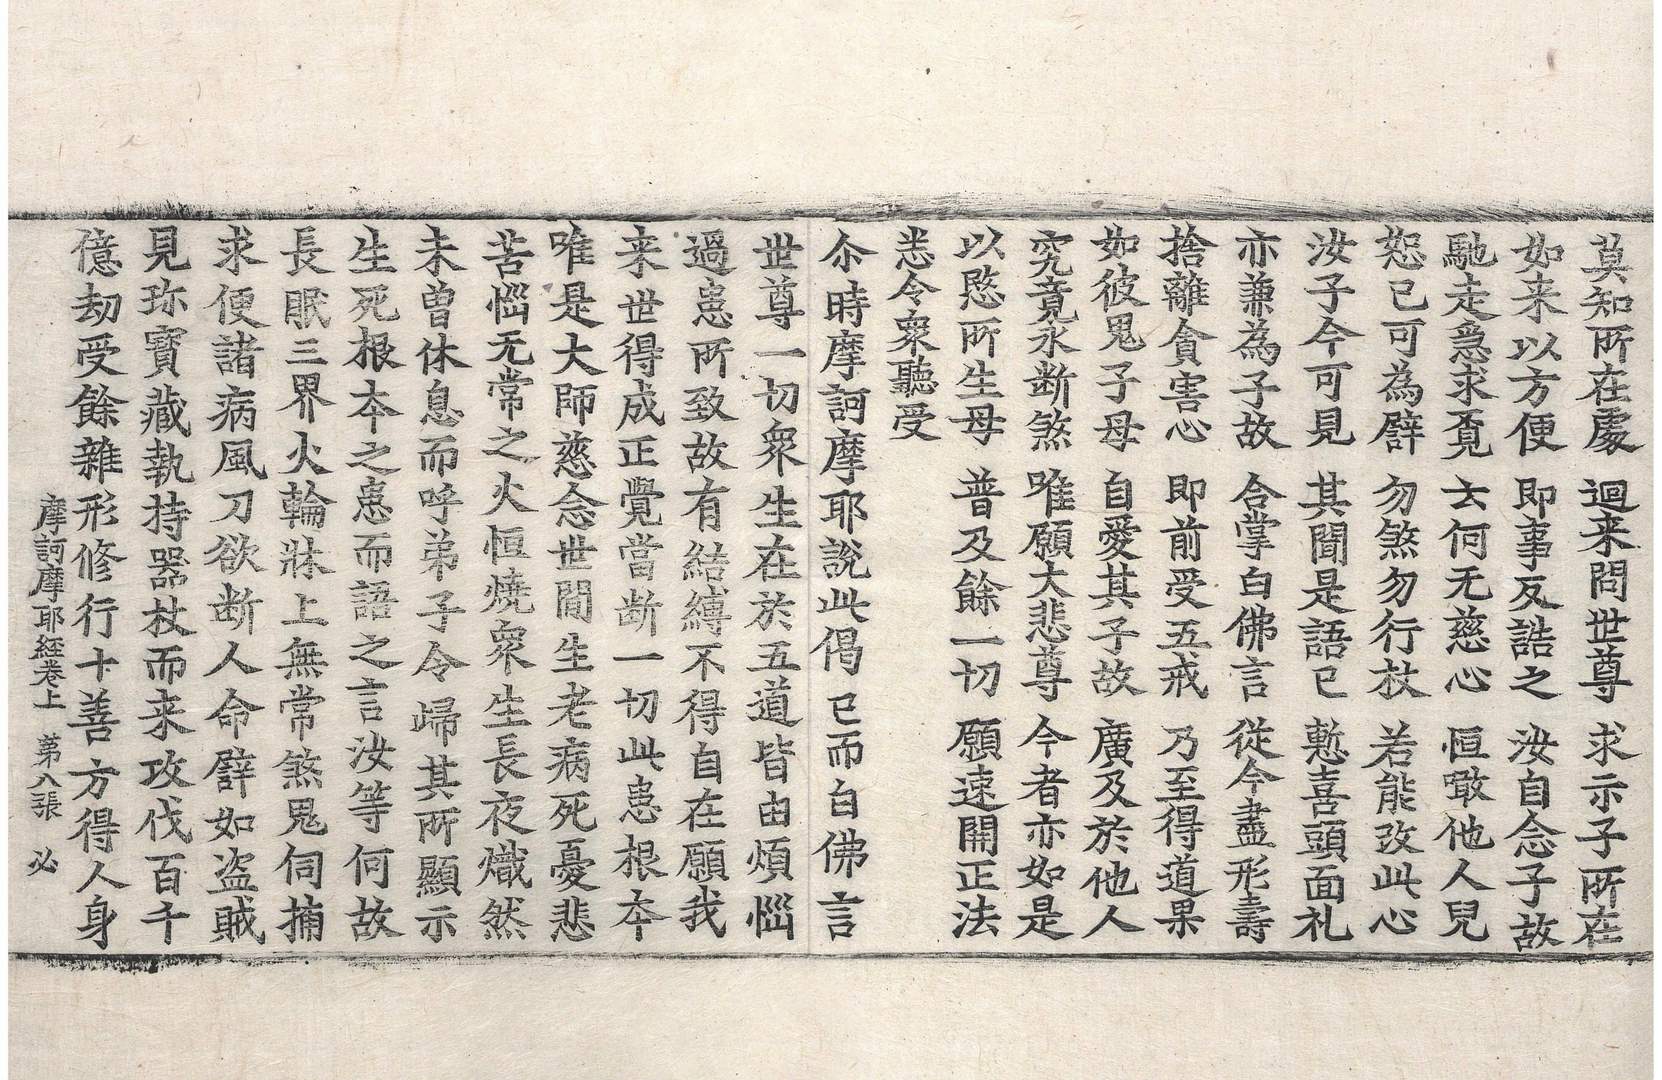 莫知所在處　迴来問世尊　求示子所在
如来以方便　即事反誥之　汝自念子故
馳走急求覔　云何无慈心　恒噉他人兒
恕己可為辟　勿煞勿行杖　若能改此心
汝子今可見　其聞是語已　慙喜頭面礼
亦兼為子故　合掌白佛言　從今盡形壽
捨離貪害心　即前受五戒　乃至得道果
如彼鬼子母　自愛其子故　廣及於他人
究竟永断煞　唯願大悲尊　今者亦如是
以愍所生母　普及餘一切　願速開正法
恙令衆聽受
尒時摩訶摩耶說此偈已而白佛言
世尊一切衆生在於五道皆由煩惱
過患所致故有結縛不得自在願我
来世得成正覺當断一切此患根夲
唯是大師慈念世間生老病死憂悲
苦惱无常之火恒燒衆生長夜熾然
未曽休息而呼弟子令歸其所顯示
生死根夲之患而語之言汝等何故
長眠三界火輪牀上無常煞鬼伺捕
求便諸病風刀欲断人命辟如盗賊
見珎寶藏執持器杖而来攻伐百千
億劫受餘雜形修行十善方得人身
摩訶摩耶経卷上　苐八張　必